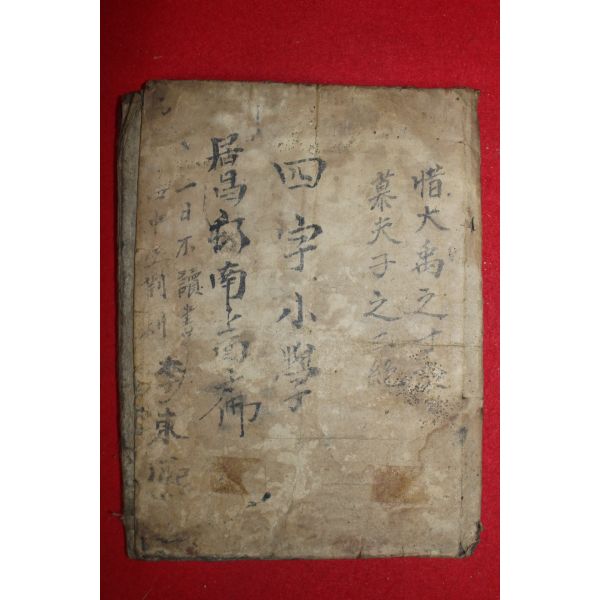 惜大禹之寸
慕夫子之三絶
四字小學
居昌郡南上面
一日不讀書
中生荊
李東熙